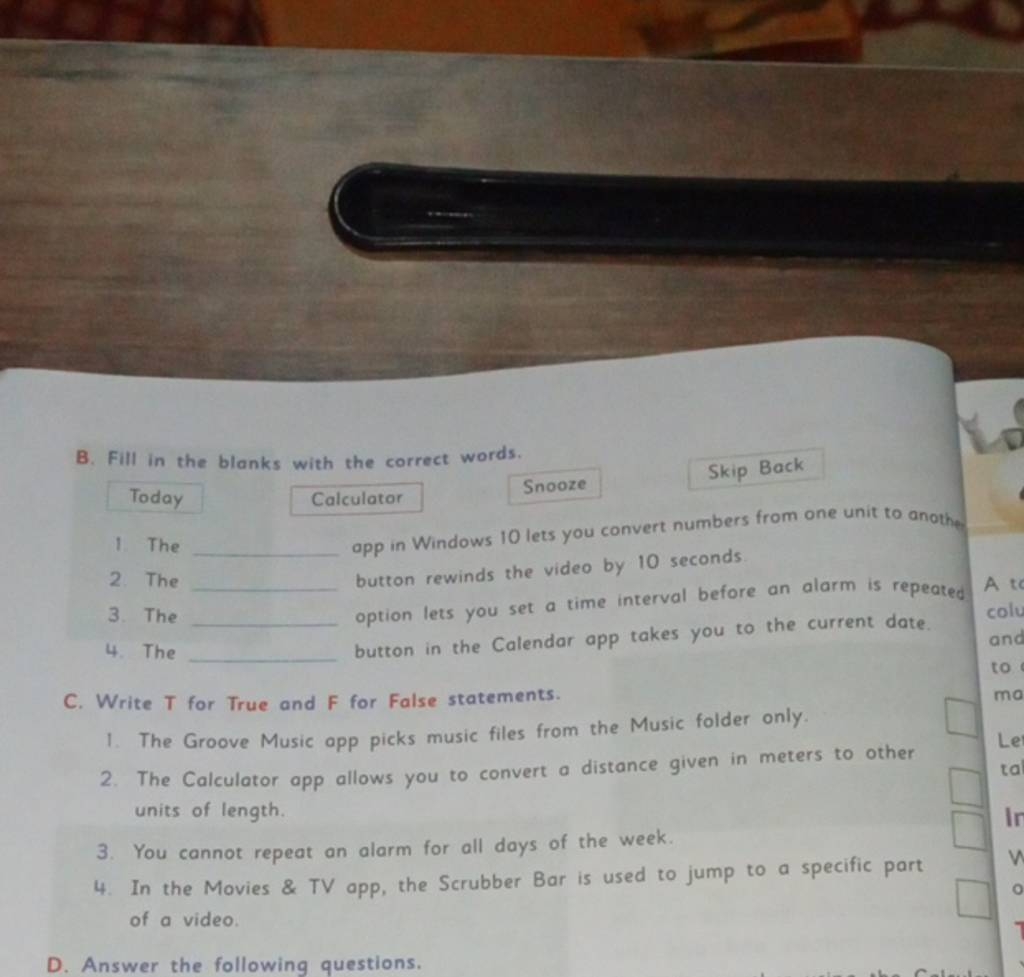 B. Fill in the blanks with the correct words.
Today Calculator Snooze Skip Back
1. The ____________ app in Windows 10 lets you convert numbers from one unit to another
2. The ____________ button rewinds the video by 10 seconds.
3. The ____________ option lets you set a time interval before an alarm is repeated.
4. The ____________ button in the Calendar app takes you to the current date.
C. Write T for True and F for False statements.
1. The Groove Music app picks music files from the Music folder only.
2. The Calculator app allows you to convert a distance given in meters to other
units of length.
3. You cannot repeat an alarm for all days of the week.
4. In the Movies & TV app, the Scrubber Bar is used to jump to a specific part
of a video.
D. Answer the following questions.
A
and
to